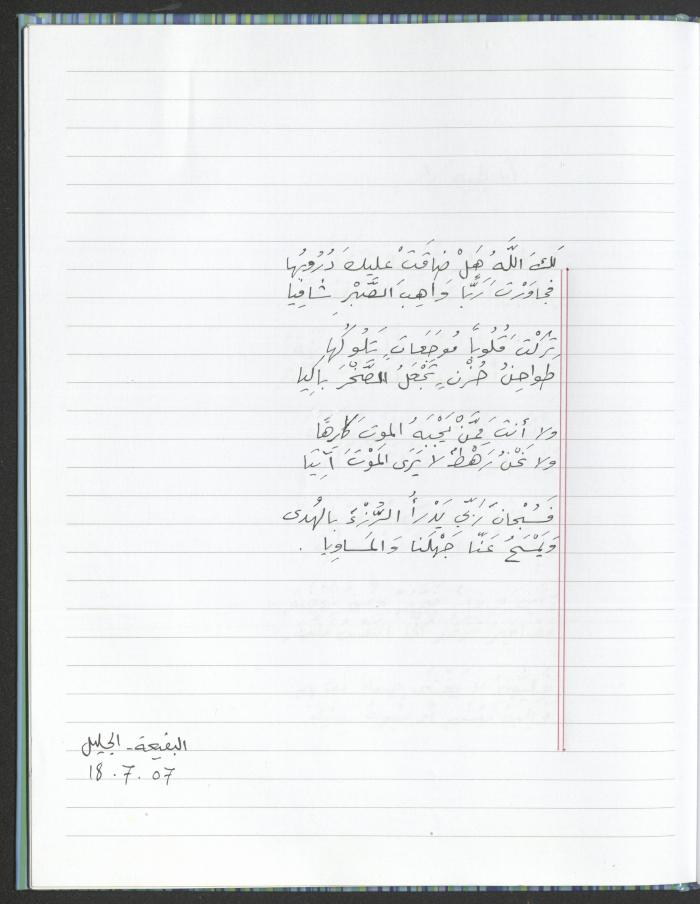 لكَ اللَّهُ هَلْ ضاقَتْ عليكَ دُرُوبُها
فجاوَرْتَ رَبًّا وَاهِبَ الصَّبْرِ شافِيا
تركْتَ قُلُوبًا مُوجَعَاتٍ يَلُوكُها
طواحِنُ حُزْنٍ تَجْعَلُ الصَّخْرَ باكِيا
ولا أنتَ مِمَّنْ يَجْبَهُ الموتَ كارِهًا
ولا نَحْنُ رَهْطٌ لا يَرَى المَوْتَ آتِيَا
فَسُبْحانَ رَبّي يَدْرأُ الرُّزْءَ بالهُدى
وَيَمْسَحُ عَنَّا جَهْلَنا وَالمَساوِيا .
البقيعة - الجليل
18.7.07